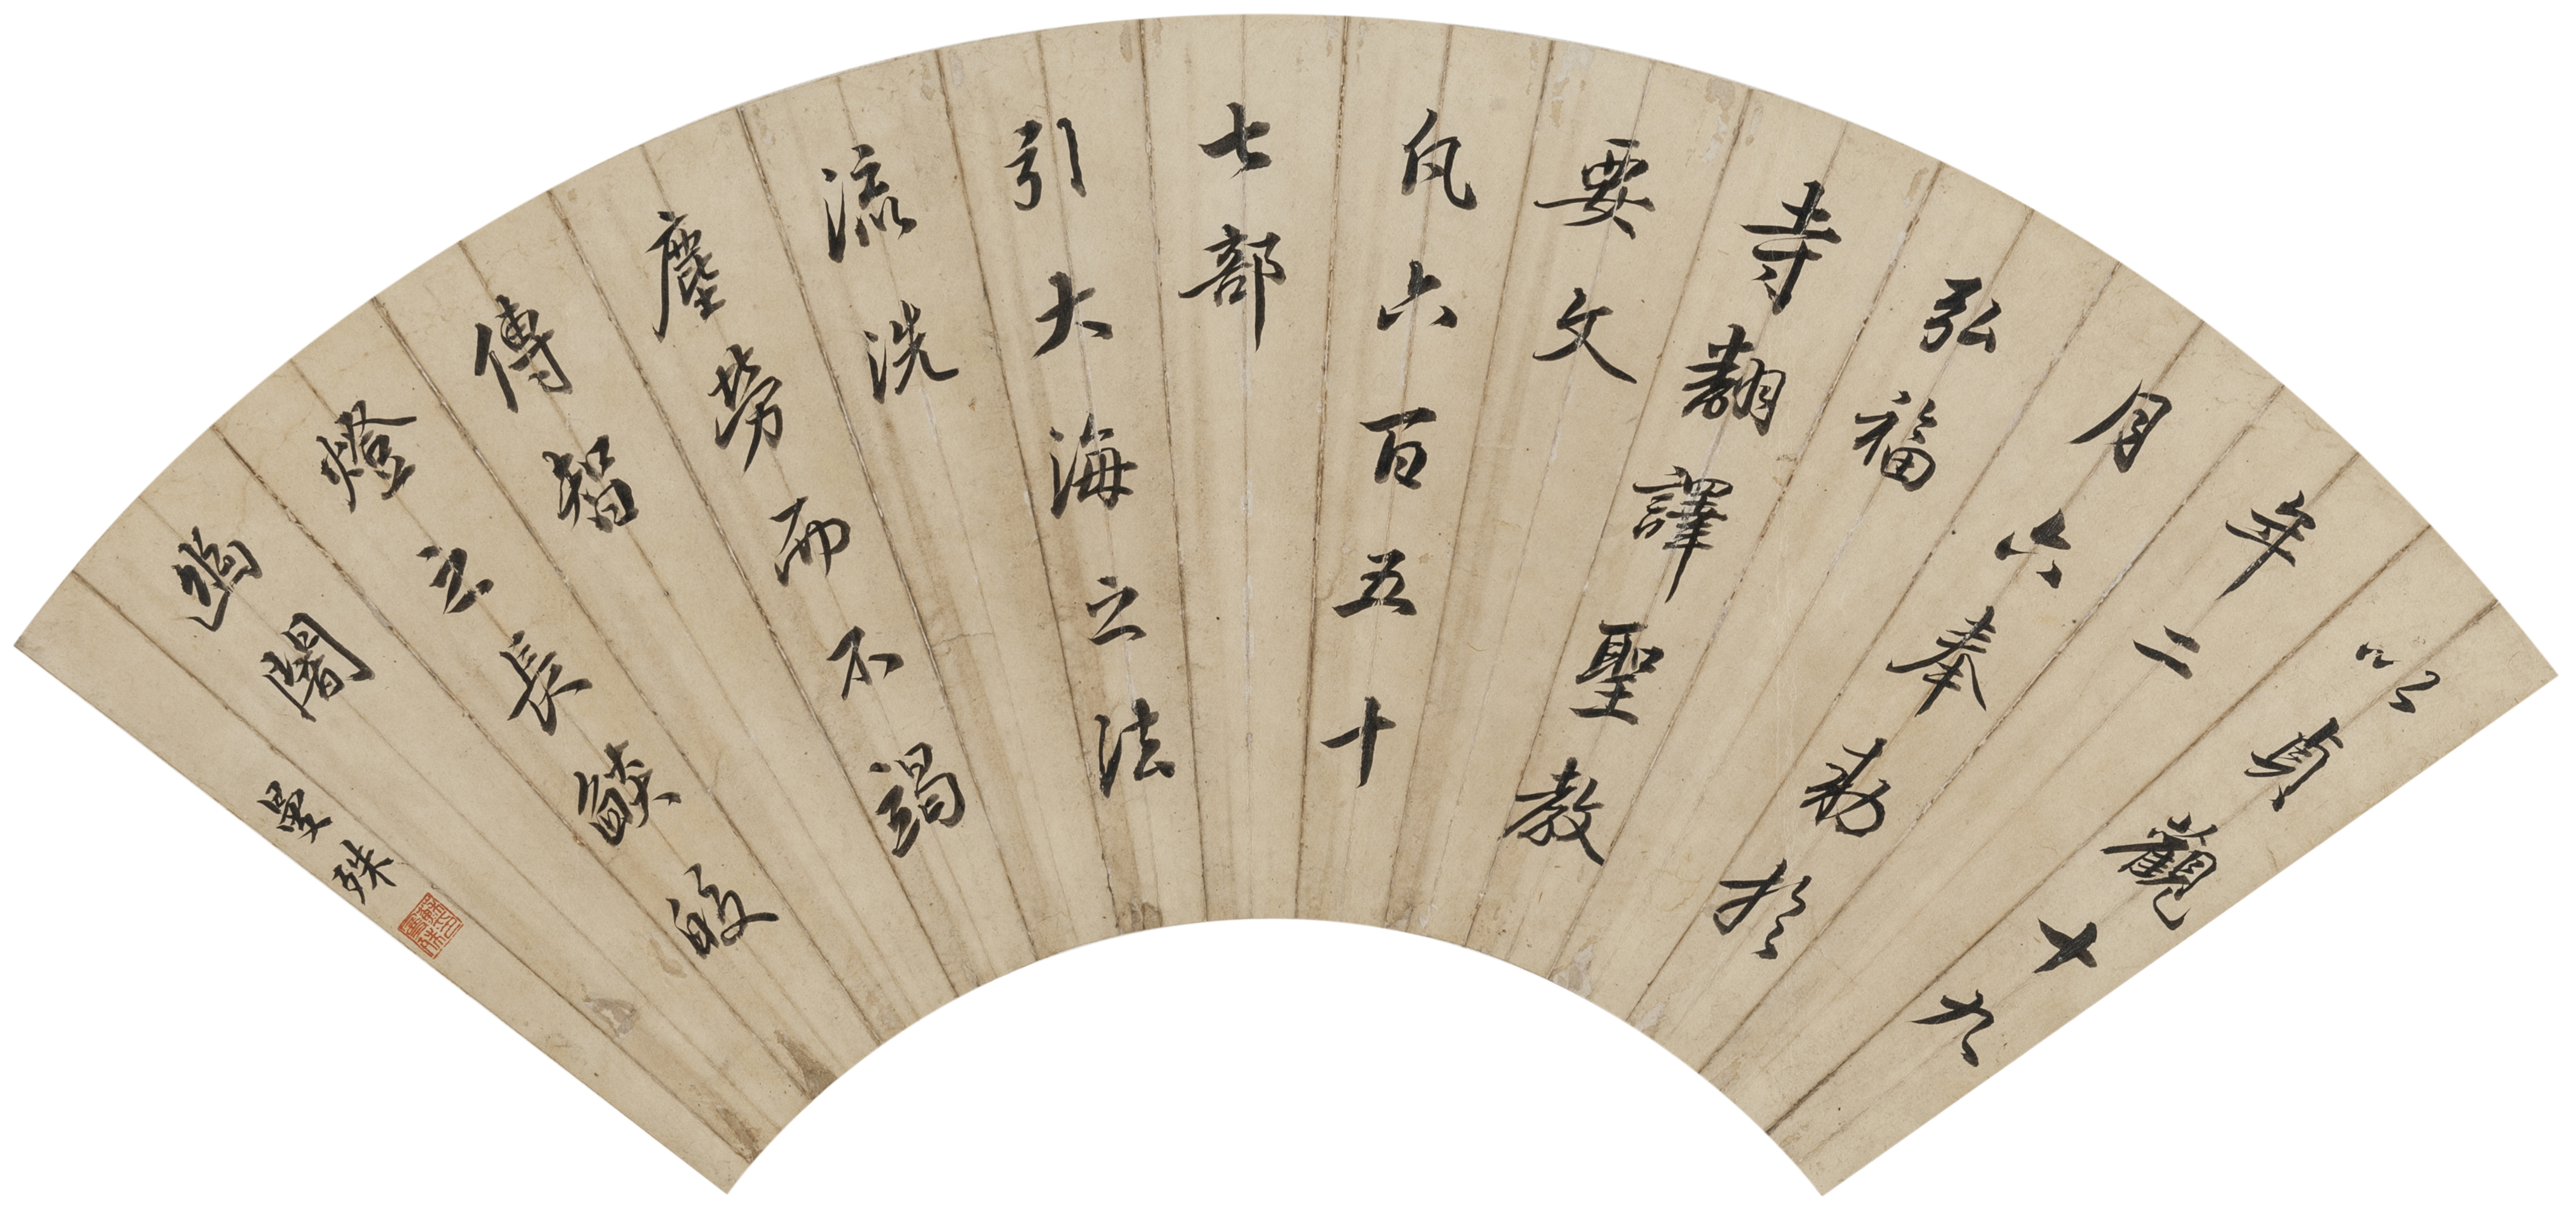 以貞觀十九
年二
月六奉勑於
弘福
寺翻譯聖教
要文
凡六百五十
七部
引大海之法
流洗
塵勞而不竭
傳智
燈之長燄皎
幽闇
曼殊